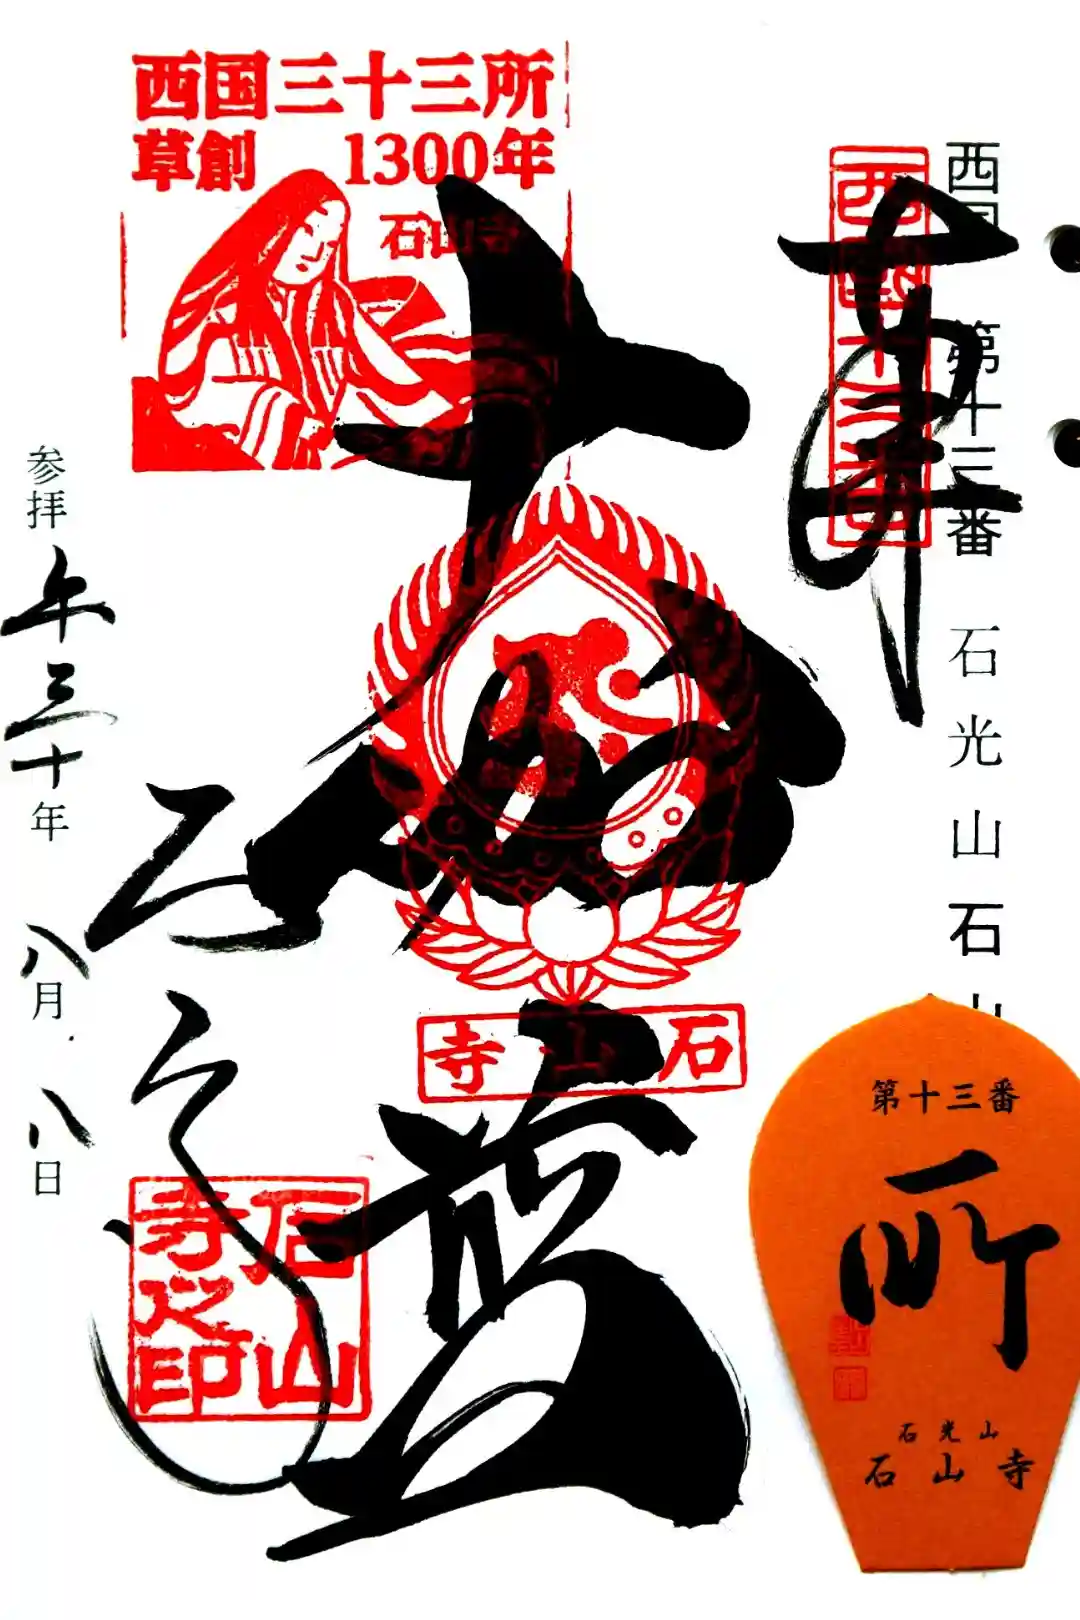 西国 第十三番 石光山石山
西國十三番
奉拝
西国三十三所
草創 1300年
石山寺
大伽藍
石山寺
石山寺
石山寺之印
参拝 平三十年 八月八日
第十三番
所
石光山
石山寺